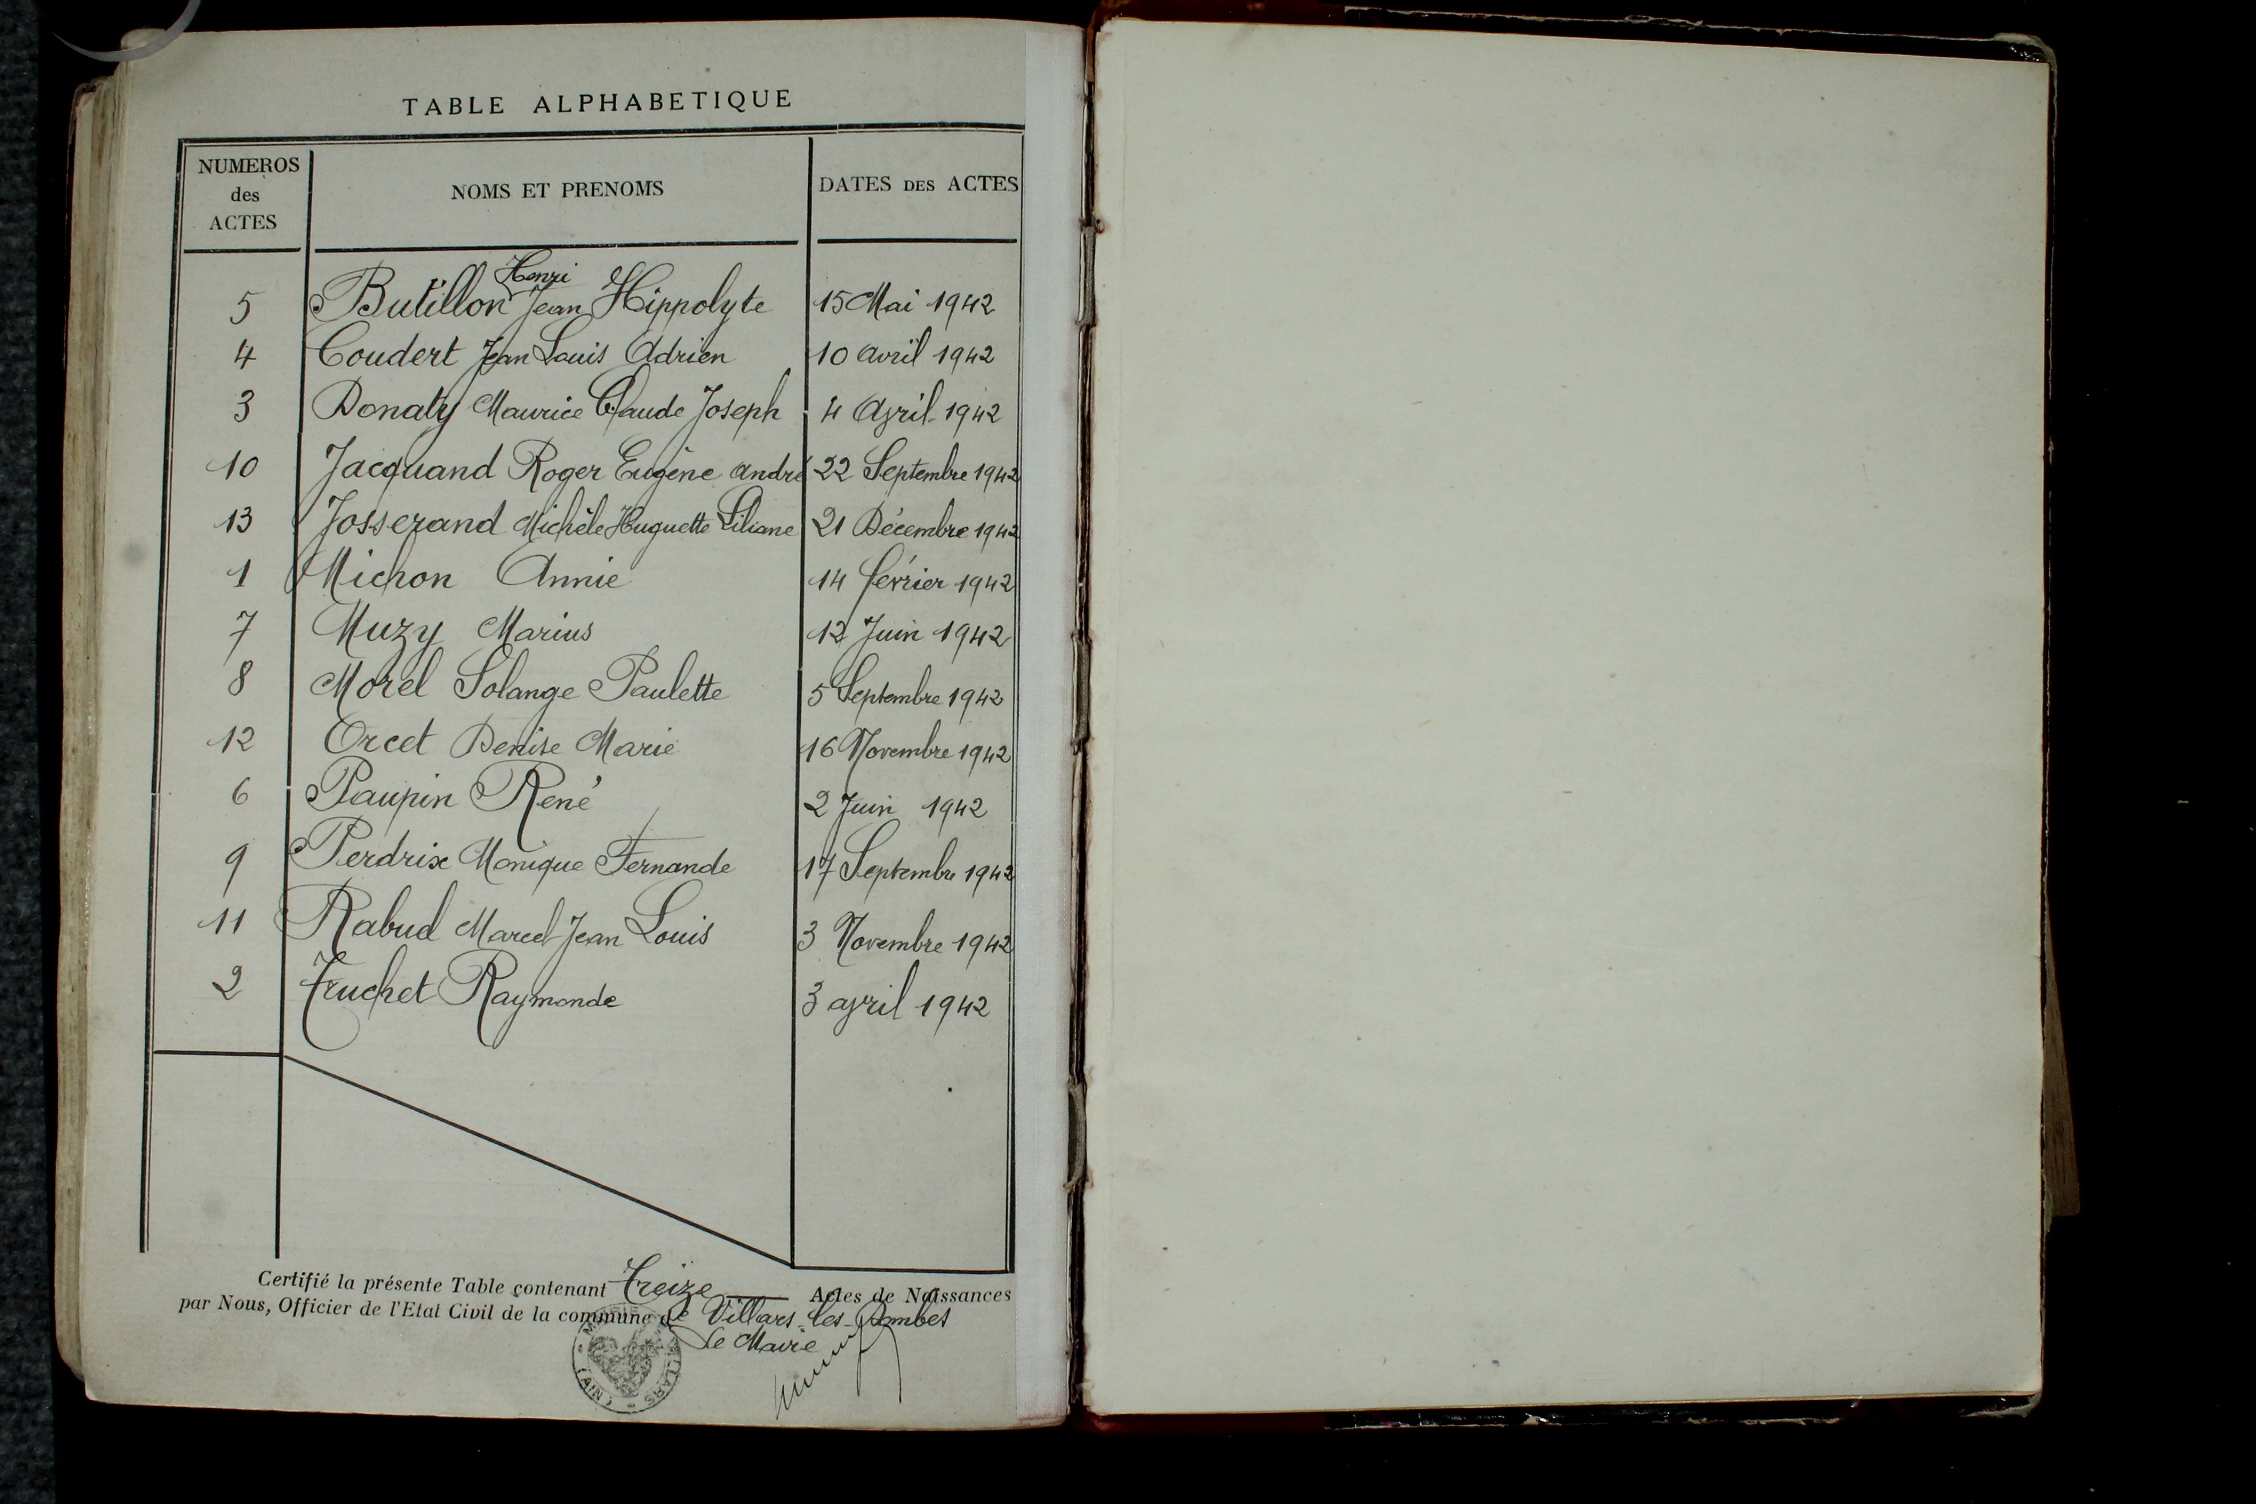 TABLE ALPHABETIQUE
NUMEROS des ACTES NOMS ET PRENOMS DATES DES ACTES
Henri
5 Butillon Jean Hippolyte 15 Mai 1942
4 Coudert Jean Louis Adrien 10 avril 1942
3 Donaty Maurice Claude Joseph 4 Avril 1942
10 Jacquand Roger Eugène André 22 Septembre 1942
13 Josserand Michèle Huguette Liliane 21 Décembre 1942
1 Michon Annie 14 février 1942
7 Muzy Marius 12 Juin 1942
8 Morel Solange Paulette 5 Septembre 1942
12 Orcet Denise Marie 16 Novembre 1942
6 Paupin René 2 Juin 1942
9 Perdrix Monique Fernande 17 Septembre 1942
11 Rabud Marcel Jean Louis 3 Novembre 1942
2 Truchet Raymonde 3 avril 1942
Certifié la présente Table contenant Treize Actes de Naissances
par Nous, Officier de l'Etat Civil de la commune de Villars-les-Dombes
Le Maire
MAIRIE VILLARS (AIN)